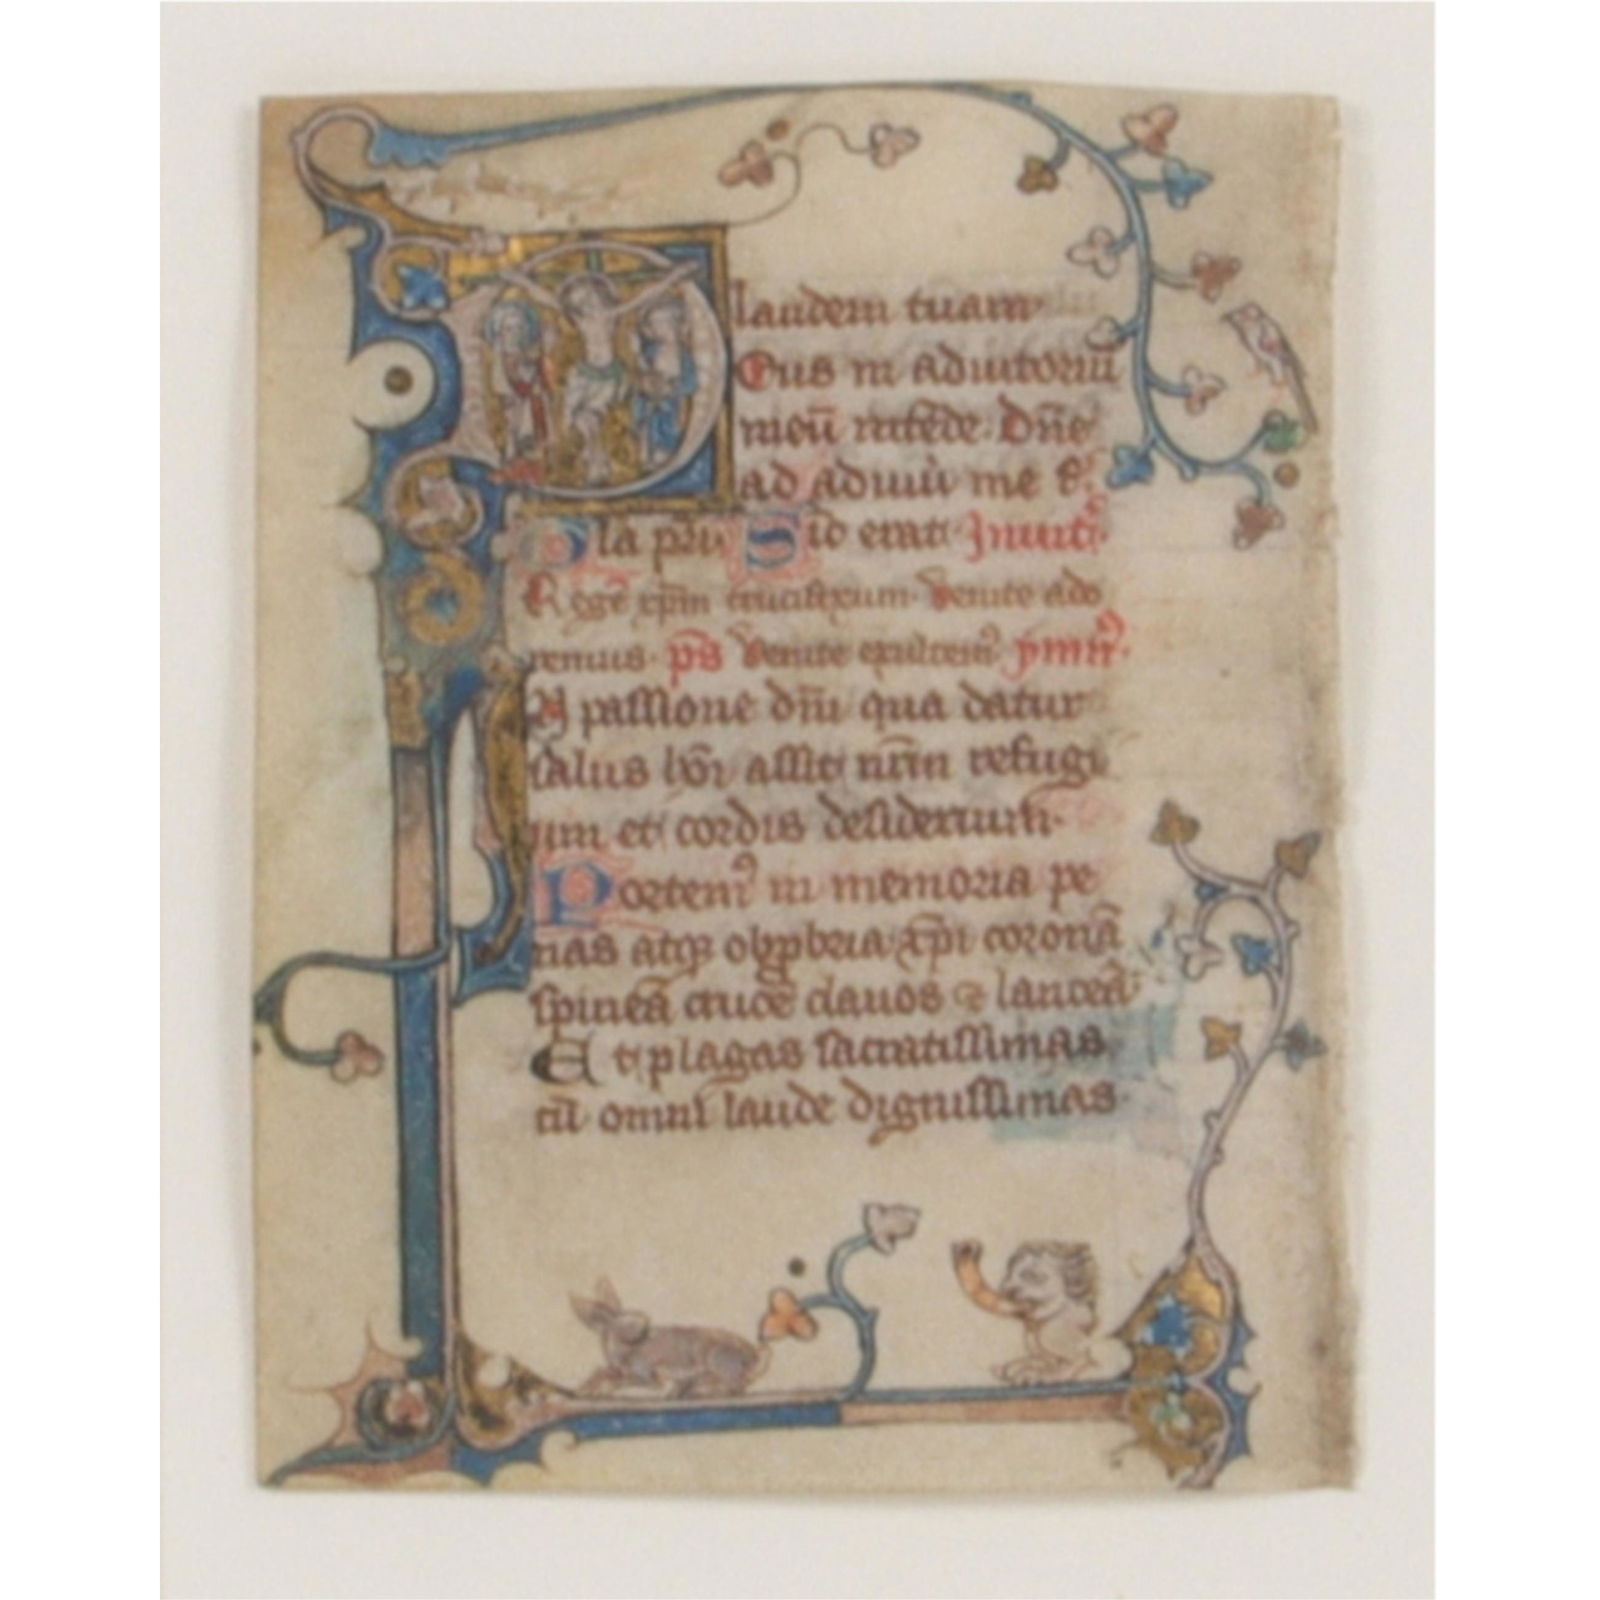 laudem tuam
Deus in adiutoriū
meū intēde. Dn̄e
ad adiuu me f.
Gla pr̄i Sic̄ erat Inuit.
Regē xp̄m crucifixum. Venite ado
remus. ps̄ Venite exultem⁹ ymn⁹.
In passione dn̄i qua datur
salus hōi assit nr̄m refugi
um et cordis desiderium.
Portem⁹ in memoria pe
nas atq₃ obp̱bria xp̄i coronā
spineā crucē clauos ⁊ lanceā
Et plagas sacratissimas
cū omni laude dignissimas.